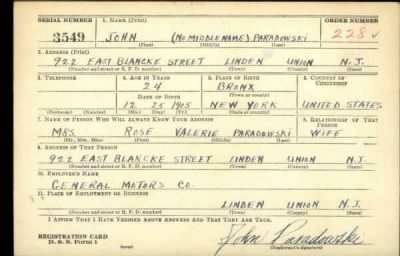 SERIAL NUMBER 1. NAME (Print) ORDER NUMBER
3549 JOHN (NO MIDDLE NAME) PARADOWSKI 228
(First) (Middle) (Last)
2. ADDRESS (Print)
922 EAST BLANCKE STREET LINDEN UNION N.J.
(Number and street or R. F. D. number) (Town) (County) (State)
3. TELEPHONE 4. AGE IN YEARS 5. PLACE OF BIRTH 6. COUNTRY OF CITIZENSHIP
24 BRONX
DATE OF BIRTH (Town or county)
12 25 1915 NEW YORK UNITED STATES
(Exchange) (Number) (Mo.) (Day) (Yr.) (State or country)
7. NAME OF PERSON WHO WILL ALWAYS KNOW YOUR ADDRESS 8. RELATIONSHIP OF THAT PERSON
MRS. ROSE VALERIE PARADOWSKI WIFE
(Mr., Mrs., Miss) (First) (Middle) (Last)
9. ADDRESS OF THAT PERSON
922 EAST BLANCKE STREET LINDEN UNION N.J.
(Number and street or R. F. D. number) (Town) (County) (State)
10. EMPLOYER'S NAME
GENERAL MOTORS CO.
11. PLACE OF EMPLOYMENT OR BUSINESS
LINDEN UNION N.J.
(Number and street or R. F. D. number) (Town) (County) (State)
I AFFIRM THAT I HAVE VERIFIED ABOVE ANSWERS AND THAT THEY ARE TRUE.
REGISTRATION CARD
D. S. S. FORM 1 (over) John Paradowski
(Registrant's signature)